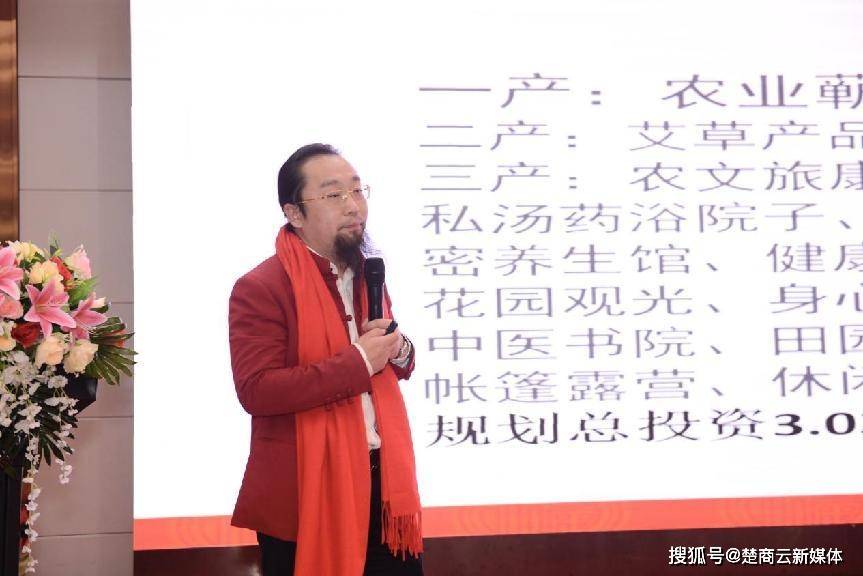 一产：农业蕲
二产：艾草产品
三产：农文旅康
私汤药浴院子、
密养生馆、健康
花园观光、身心
中医书院、田园
帐篷露营、休闲
规划总投资3.0
搜狐号@楚商云新媒体